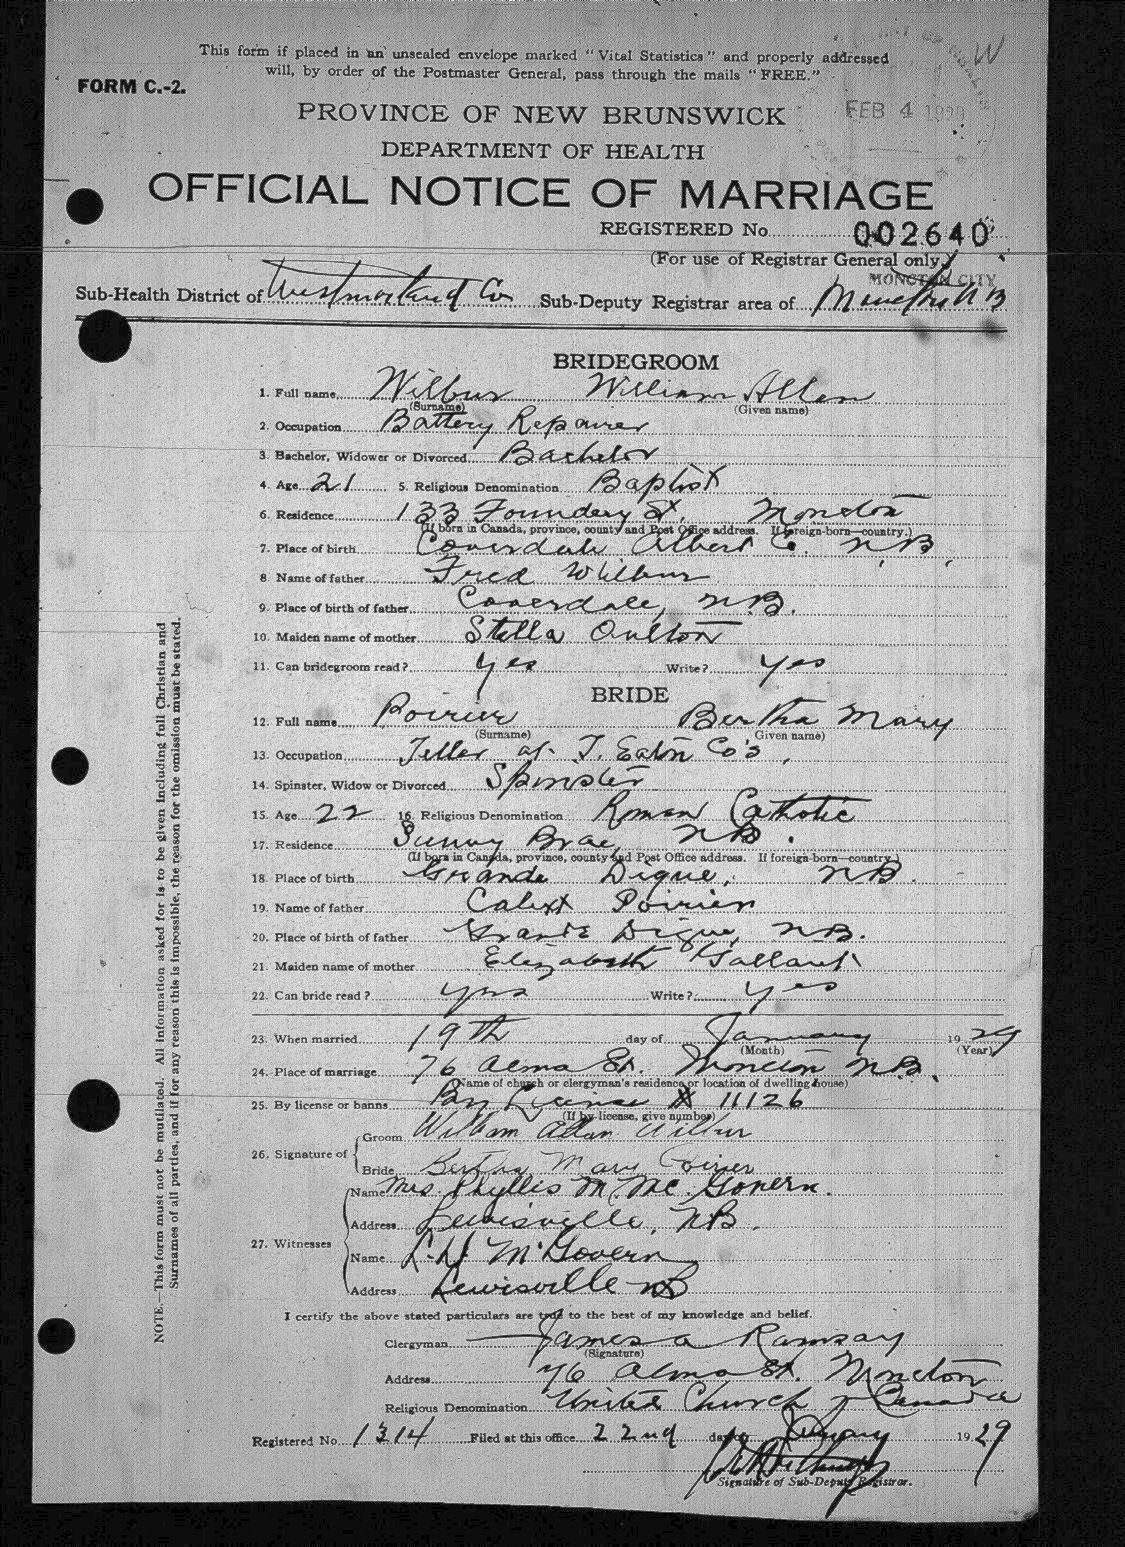 This form if placed in an unsealed envelope marked "Vital Statistics" and properly addressed
will, by order of the Postmaster General, pass through the mails "FREE."
W
FORM C.-2.
FEB 4 1929
PROVINCE OF NEW BRUNSWICK
DEPARTMENT OF HEALTH
OFFICIAL NOTICE OF MARRIAGE
REGISTERED No. 002640
(For use of Registrar General only.)
MONCTON CITY
Sub-Health District of Westmorland Co Sub-Deputy Registrar area of Moncton N B
BRIDEGROOM
1. Full name Wilbur William Allan
(Surname) (Given name)
2. Occupation Battery Repairer
3. Bachelor, Widower or Divorced Bachelor
4. Age 21 5. Religious Denomination Baptist
6. Residence 133 Foundery St, Moncton
(If born in Canada, province, county and Post Office address. If foreign-born—country.)
7. Place of birth Coverdale Albert Co. N.B.
8. Name of father Fred Wilbur
9. Place of birth of father Coverdale, N.B.
10. Maiden name of mother Stella Oulton
11. Can bridegroom read? yes Write? yes
BRIDE
12. Full name Poirier Bertha Mary
(Surname) (Given name)
13. Occupation Teller at T. Eaton Co's,
14. Spinster, Widow or Divorced Spinster
15. Age 22 16. Religious Denomination Roman Catholic
17. Residence Sunny Brae, N.B.
(If born in Canada, province, county and Post Office address. If foreign-born—country.)
18. Place of birth Grande Digue, N.B.
19. Name of father Calixt Poirier
20. Place of birth of father Grande Digue, N.B.
21. Maiden name of mother Elizabeth Gallant
22. Can bride read? yes Write? yes
23. When married 19th day of January 1929
(Month) (Year)
24. Place of marriage 76 Alma St. Moncton N.B.
(Name of church or clergyman's residence or location of dwelling house)
25. By license or banns By License # 11126
(If by license, give number)
26. Signature of Groom William Allan Wilbur
Bride Bertha Mary Poirier
27. Witnesses Name Mrs. Phyllis M. Mc.Govern.
Address Lewisville, N.B.
Name L. H. McGovern
Address Lewisville N B
I certify the above stated particulars are true to the best of my knowledge and belief.
Clergyman James A Ramsay
(Signature)
Address 76 Alma St. Moncton
Religious Denomination United Church of Canada
Registered No. 1314 Filed at this office 22nd day of January 1929
Signature of Sub-Deputy Registrar.
NOTE.—This form must not be mutilated. All information asked for is to be given including full Christian and
Surnames of all parties, and if for any reason this is impossible, the reason for the omission must be stated.